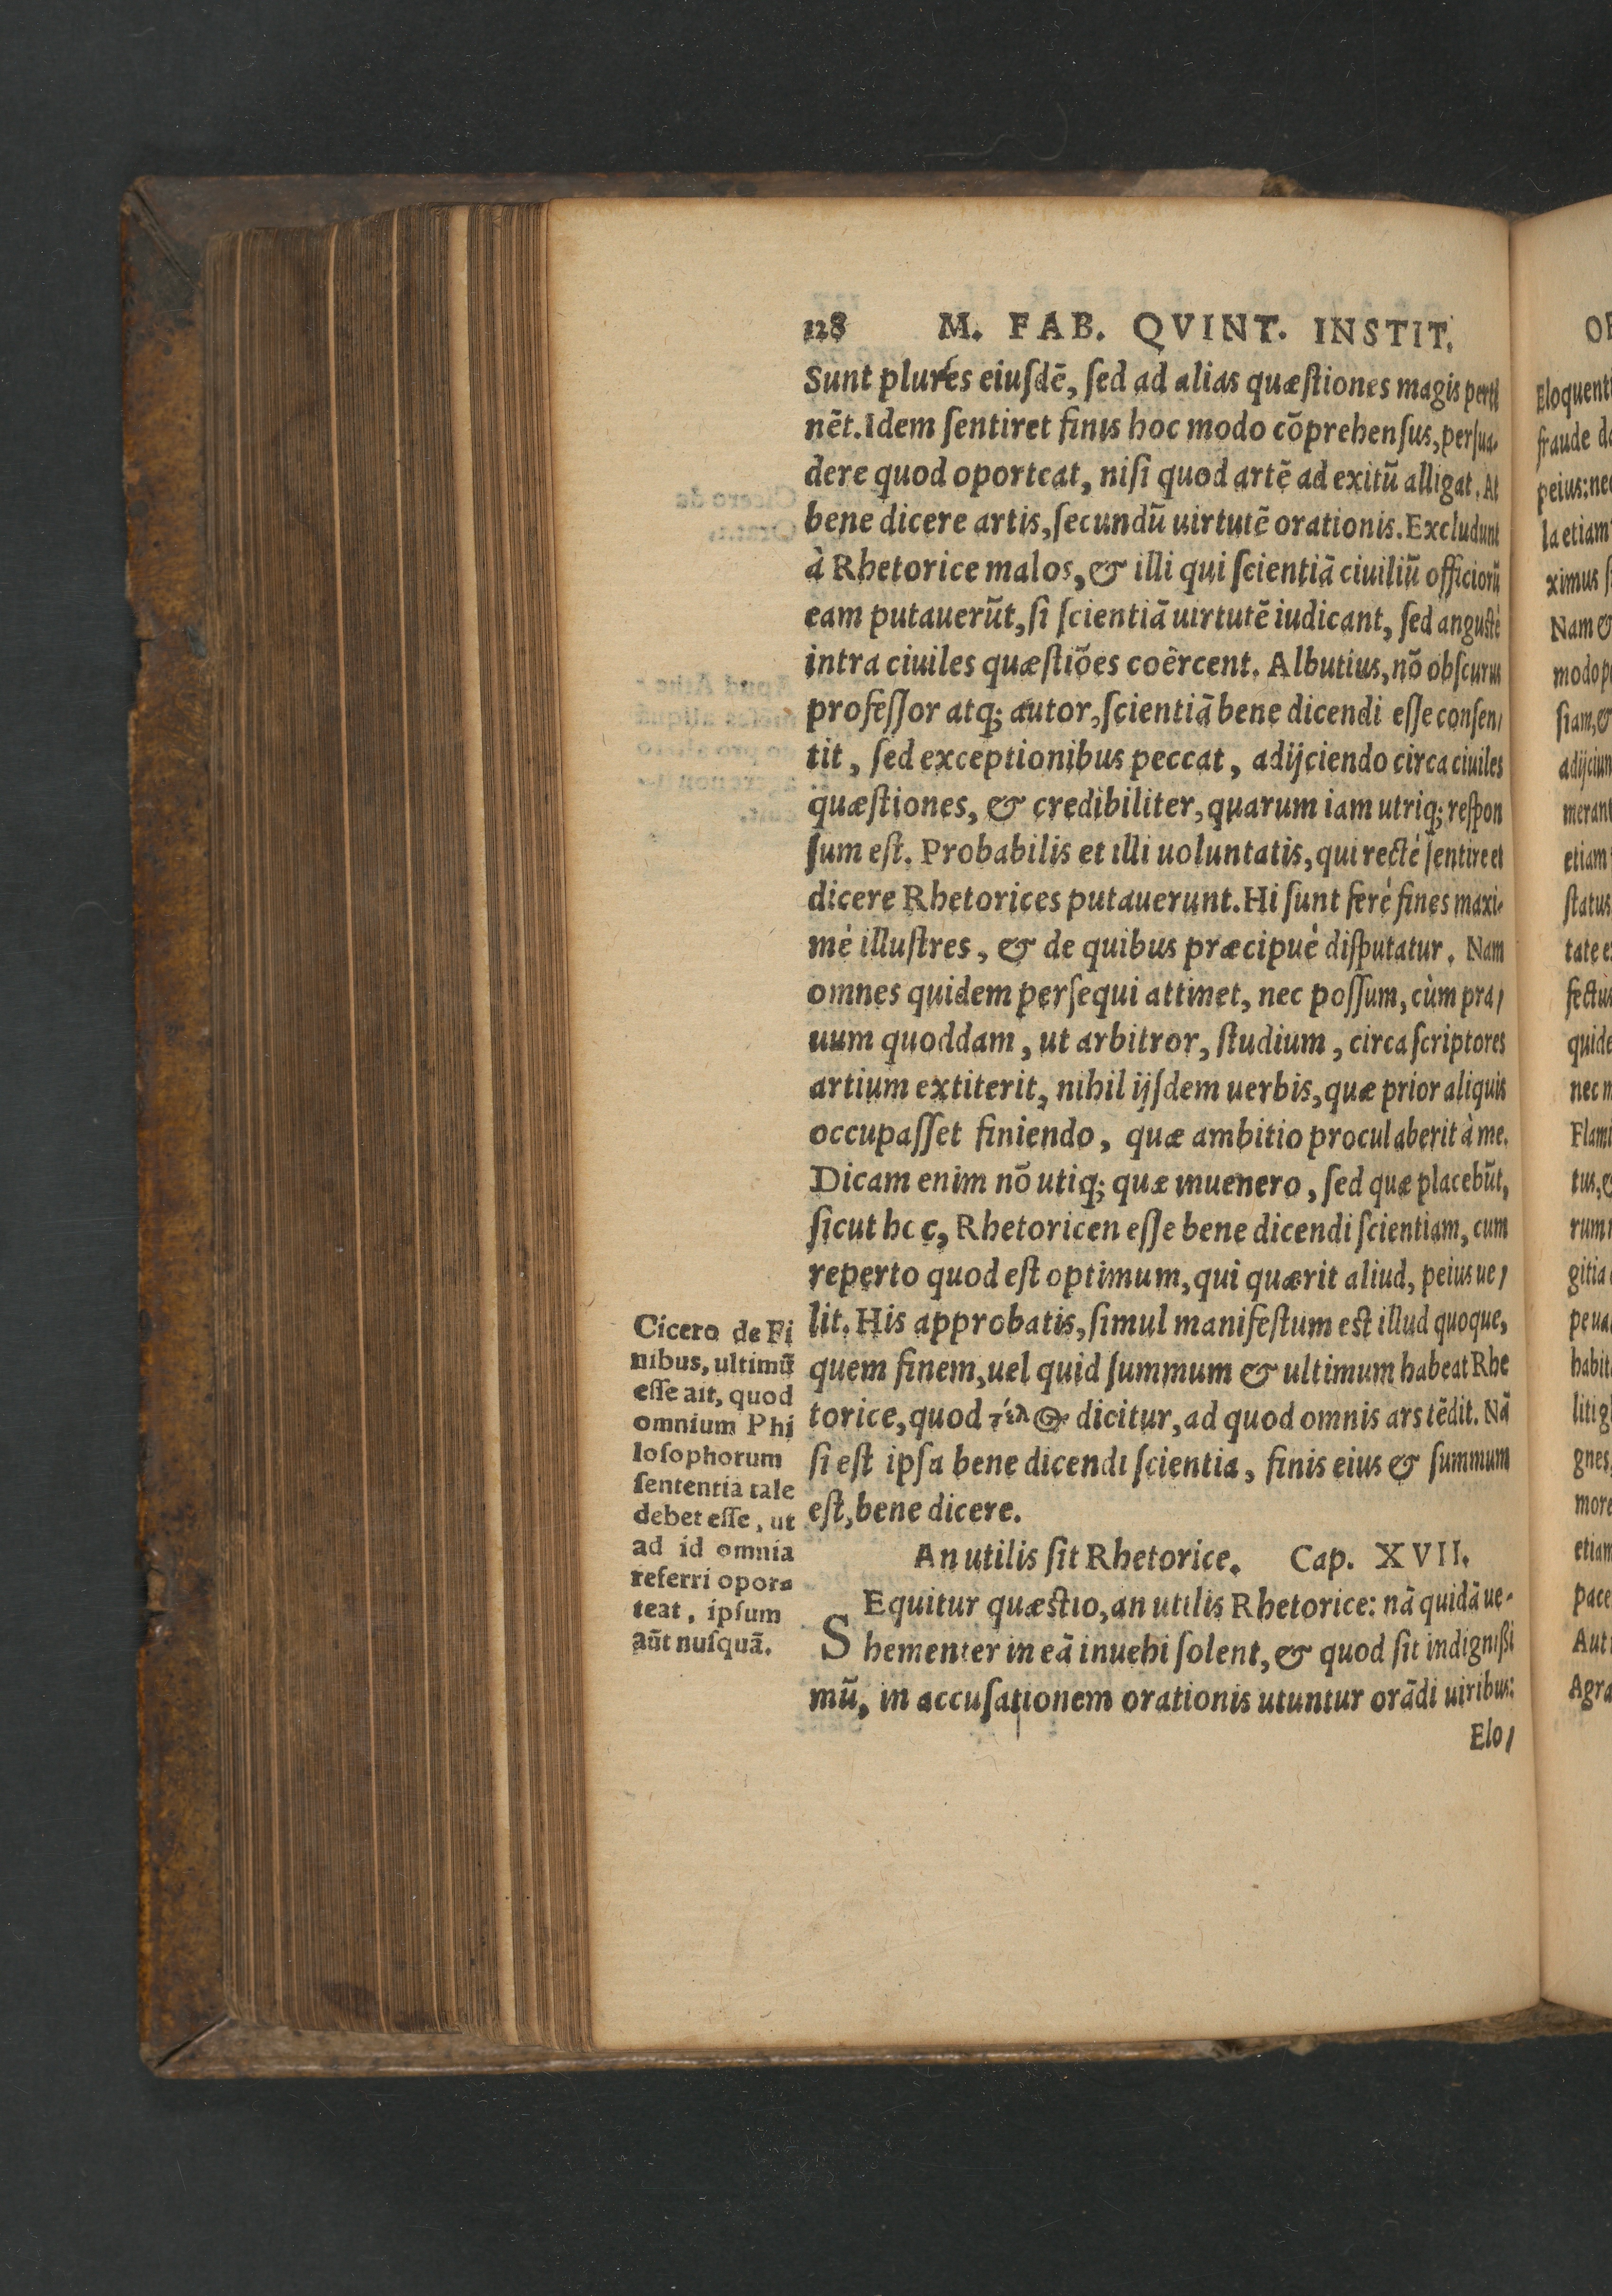 128 M. FAB. QVINT. INSTIT.
Sunt plures eiuſdē, ſed ad alias quæſtiones magis perti
nēt. Idem ſentiret finis hoc modo cōprehenſus, perſua-
dere quod oporteat, niſi quod artē ad exitū alligat. At
bene dicere artis, ſecundū uirtutē orationis. Excludunt
à Rhetorice malos, & illi qui ſcientiā ciuiliū officiorū
eam putauerūt, ſi ſcientiā uirtutē iudicant, ſed angustè
intra ciuiles quæſtiōes coërcent. Albutius, nō obſcurus
profeſſor atq; autor, ſcientiā bene dicendi eſſe conſen/
tit, ſed exceptionibus peccat, adijciendo circa ciuiles
quæſtiones, & credibiliter, quarum iam utriq; reſpon
ſum eſt. Probabilis et illi uoluntatis, qui rectè ſentire et
dicere Rhetorices putauerunt. Hi ſunt ferè fines maxi-
mè illuſtres, & de quibus præcipuè diſputatur. Nam
omnes quidem perſequi attinet, nec poſſum, cùm pra/
uum quoddam, ut arbitror, ſtudium, circa ſcriptores
artium extiterit, nihil ijſdem uerbis, quæ prior aliquis
occupaſſet finiendo, quæ ambitio procul aberit à me.
Dicam enim nō utiq; quæ inuenero, ſed quæ placebūt,
ſicut hoc, Rhetoricen eſſe bene dicendi ſcientiam, cum
reperto quod eſt optimum, qui quærit aliud, peius ue/
lit. His approbatis, ſimul manifeſtum est illud quoque,
quem finem, uel quid ſummum & ultimum habeat Rhe
torice, quod τέλος dicitur, ad quod omnis ars tēdit. Nā
ſi eſt ipſa bene dicendi ſcientia, finis eius & ſummum
eſt, bene dicere.
Cicero de Fi
nibus, ultimū
eſſe ait, quod
omnium Phi
loſophorum
ſententia tale
debet eſſe, ut
ad id omnia
referri opor-
teat, ipſum
aūt nuſquā.
An utilis ſit Rhetorice. Cap. XVII.
SEquitur quæstio, an utilis Rhetorice: nā quidā ue-
hementer in eā inuehi ſolent, & quod ſit indignißi
mū, in accuſationem orationis utuntur orādi uiribus:
Elo/
Eloquenti
fraude
peius: nec
la etiam
ximus
Nam &
modo
ſiam, &
adijciun
merant
etiam
ſtatus
tate
fectus
quide
nec
Flami
tus,
rum
gitia
habit
litig
gnes,
more
etiam
pace
Agra